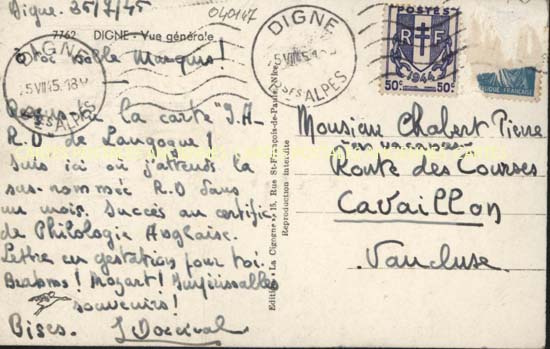 Digne. 35/7/45
040147
7762 DIGNE - Vue générale
à toi noble Marquis!
DIGNE
5 VII 45
BSES ALPES
DIGNE
5 VII 45
BSES ALPES
POSTES
R F
1944
50c 50c
FRANÇAISE
Reçus la carte "J.A-
R.D de Langogne!
Suis ici où j'attends la
sus-nommée R.D dans
un mois. Succès au certific
de Philologie Anglaise.
Lettre en gestation pour toi.
Brahms! Mozart! Impérissables
souvenirs!
Bises.
Edition « La Cigogne » 15, Rue St-François-de-Paule, Nice
Reproduction interdite
Monsieur Chabert Pierre
Route des Courses
Cavaillon
Vaucluse